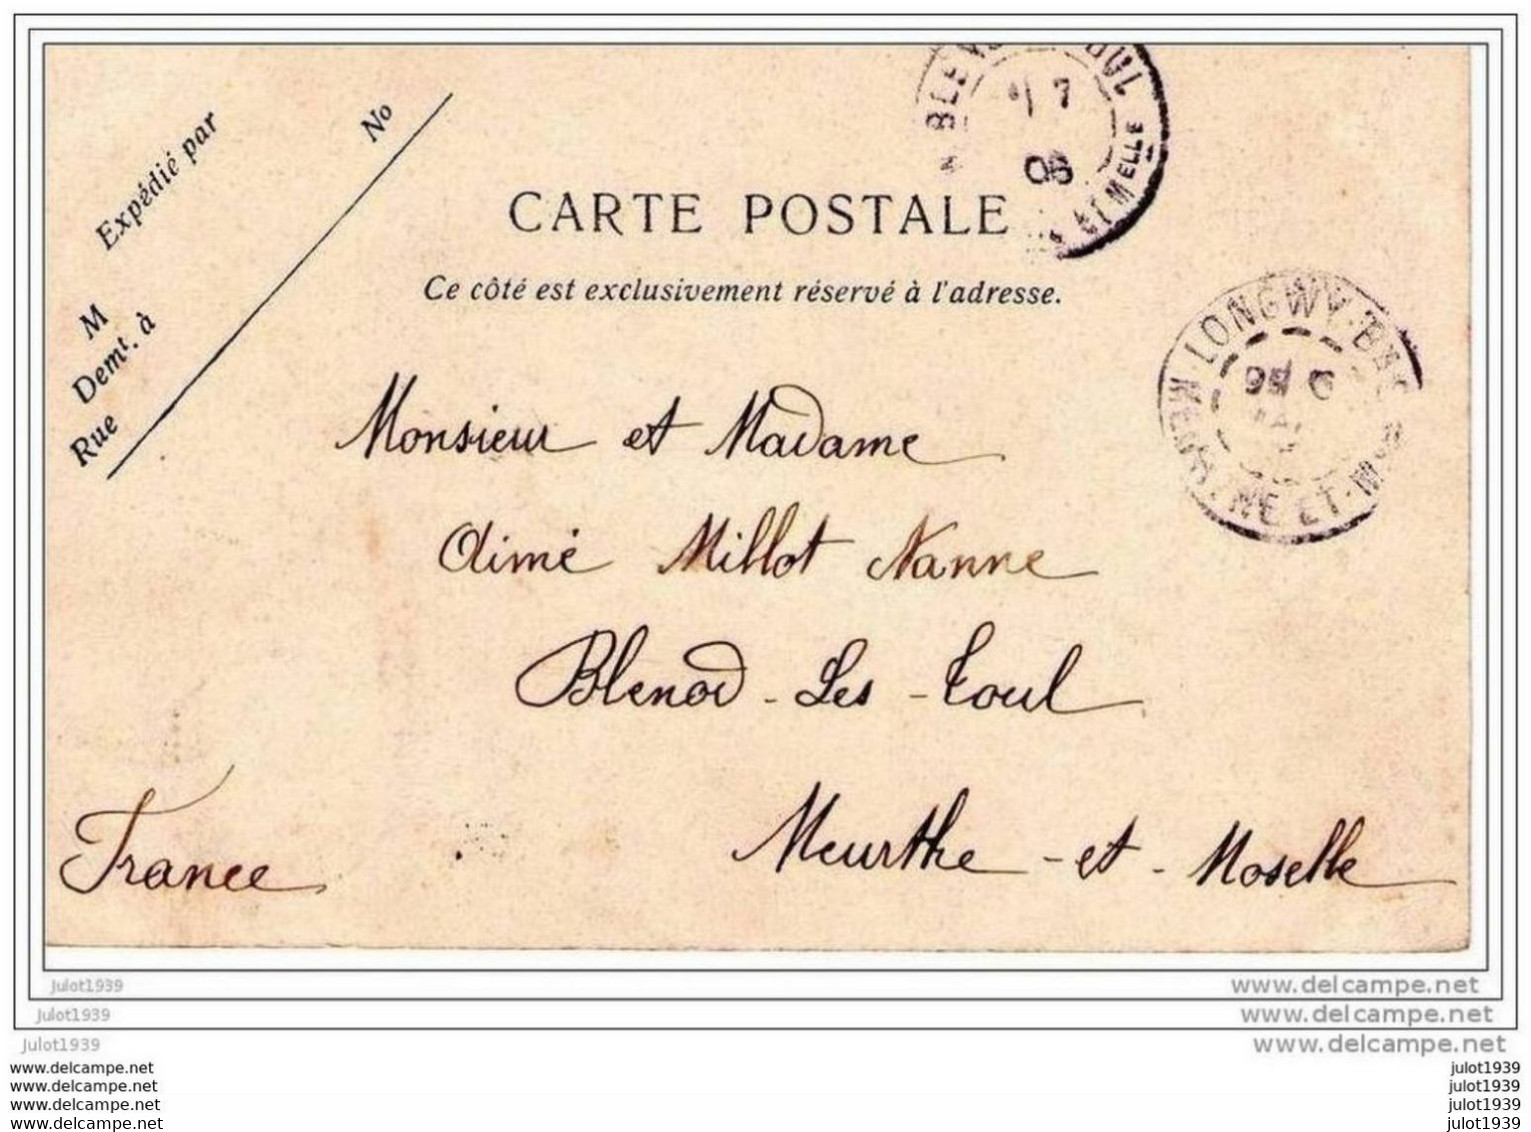 Expédié par
No
M
Demt. à
Rue
BLENOD TOUL
7
06
ET MELLE
CARTE POSTALE
Ce côté est exclusivement réservé à l'adresse.
LONGWY-BAS
MEURTHE ET M
Monsieur et Madame
Aimé Millot Nanne
Blenod-Les-Toul
Meurthe-et-Moselle
France
julot1939 www.delcampe.net
julot1939 www.delcampe.net
julot1939 www.delcampe.net
www.delcampe.net julot1939
www.delcampe.net julot1939
www.delcampe.net julot1939
www.delcampe.net julot1939